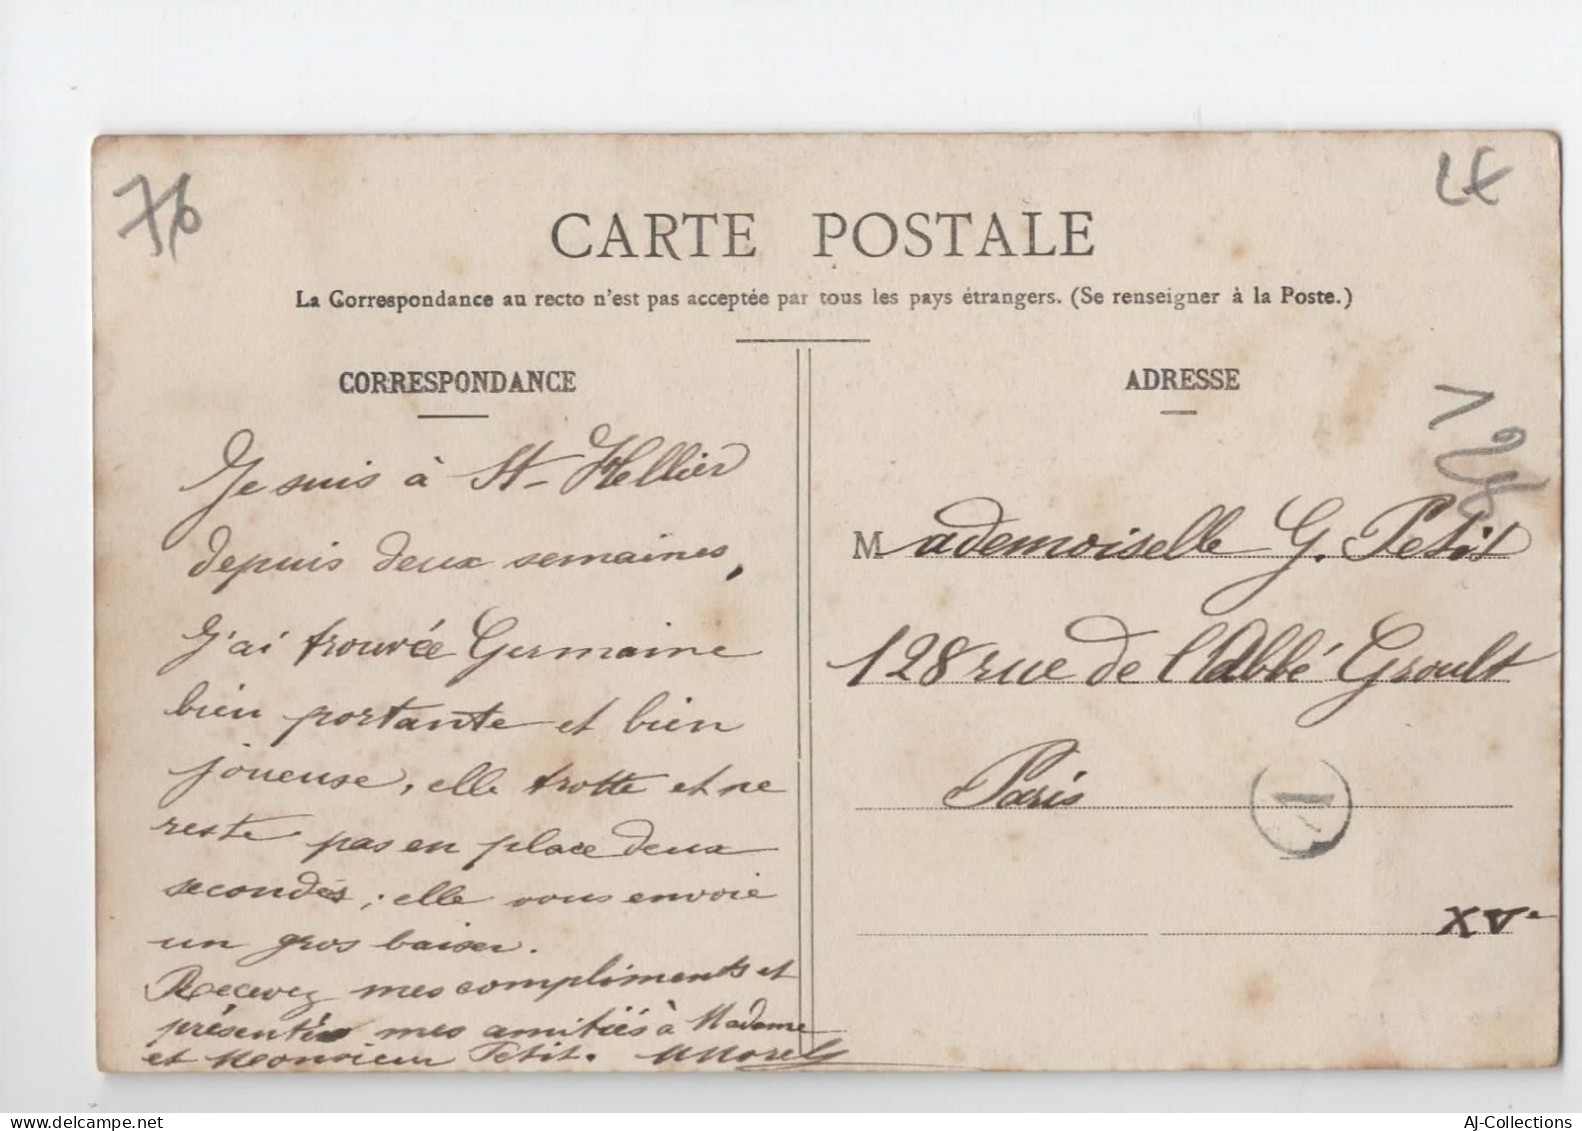 76
CARTE POSTALE
La Correspondance au recto n'est pas acceptée par tous les pays étrangers. (Se renseigner à la Poste.)
CORRESPONDANCE
Je suis à St-Hellier
depuis deux semaines,
J'ai trouvée Germaine
bien portante et bien
joueuse, elle trotte et ne
reste pas en place deux
secondes ; elle vous envoie
un gros baiser.
Recevez mes compliments et
présentés mes amitiés à Madame
et Monsieur Petit.
ADRESSE
Mademoiselle G. Petit
128 rue de l'Abbé Groult
Paris
1
XVe
AJ-Collections